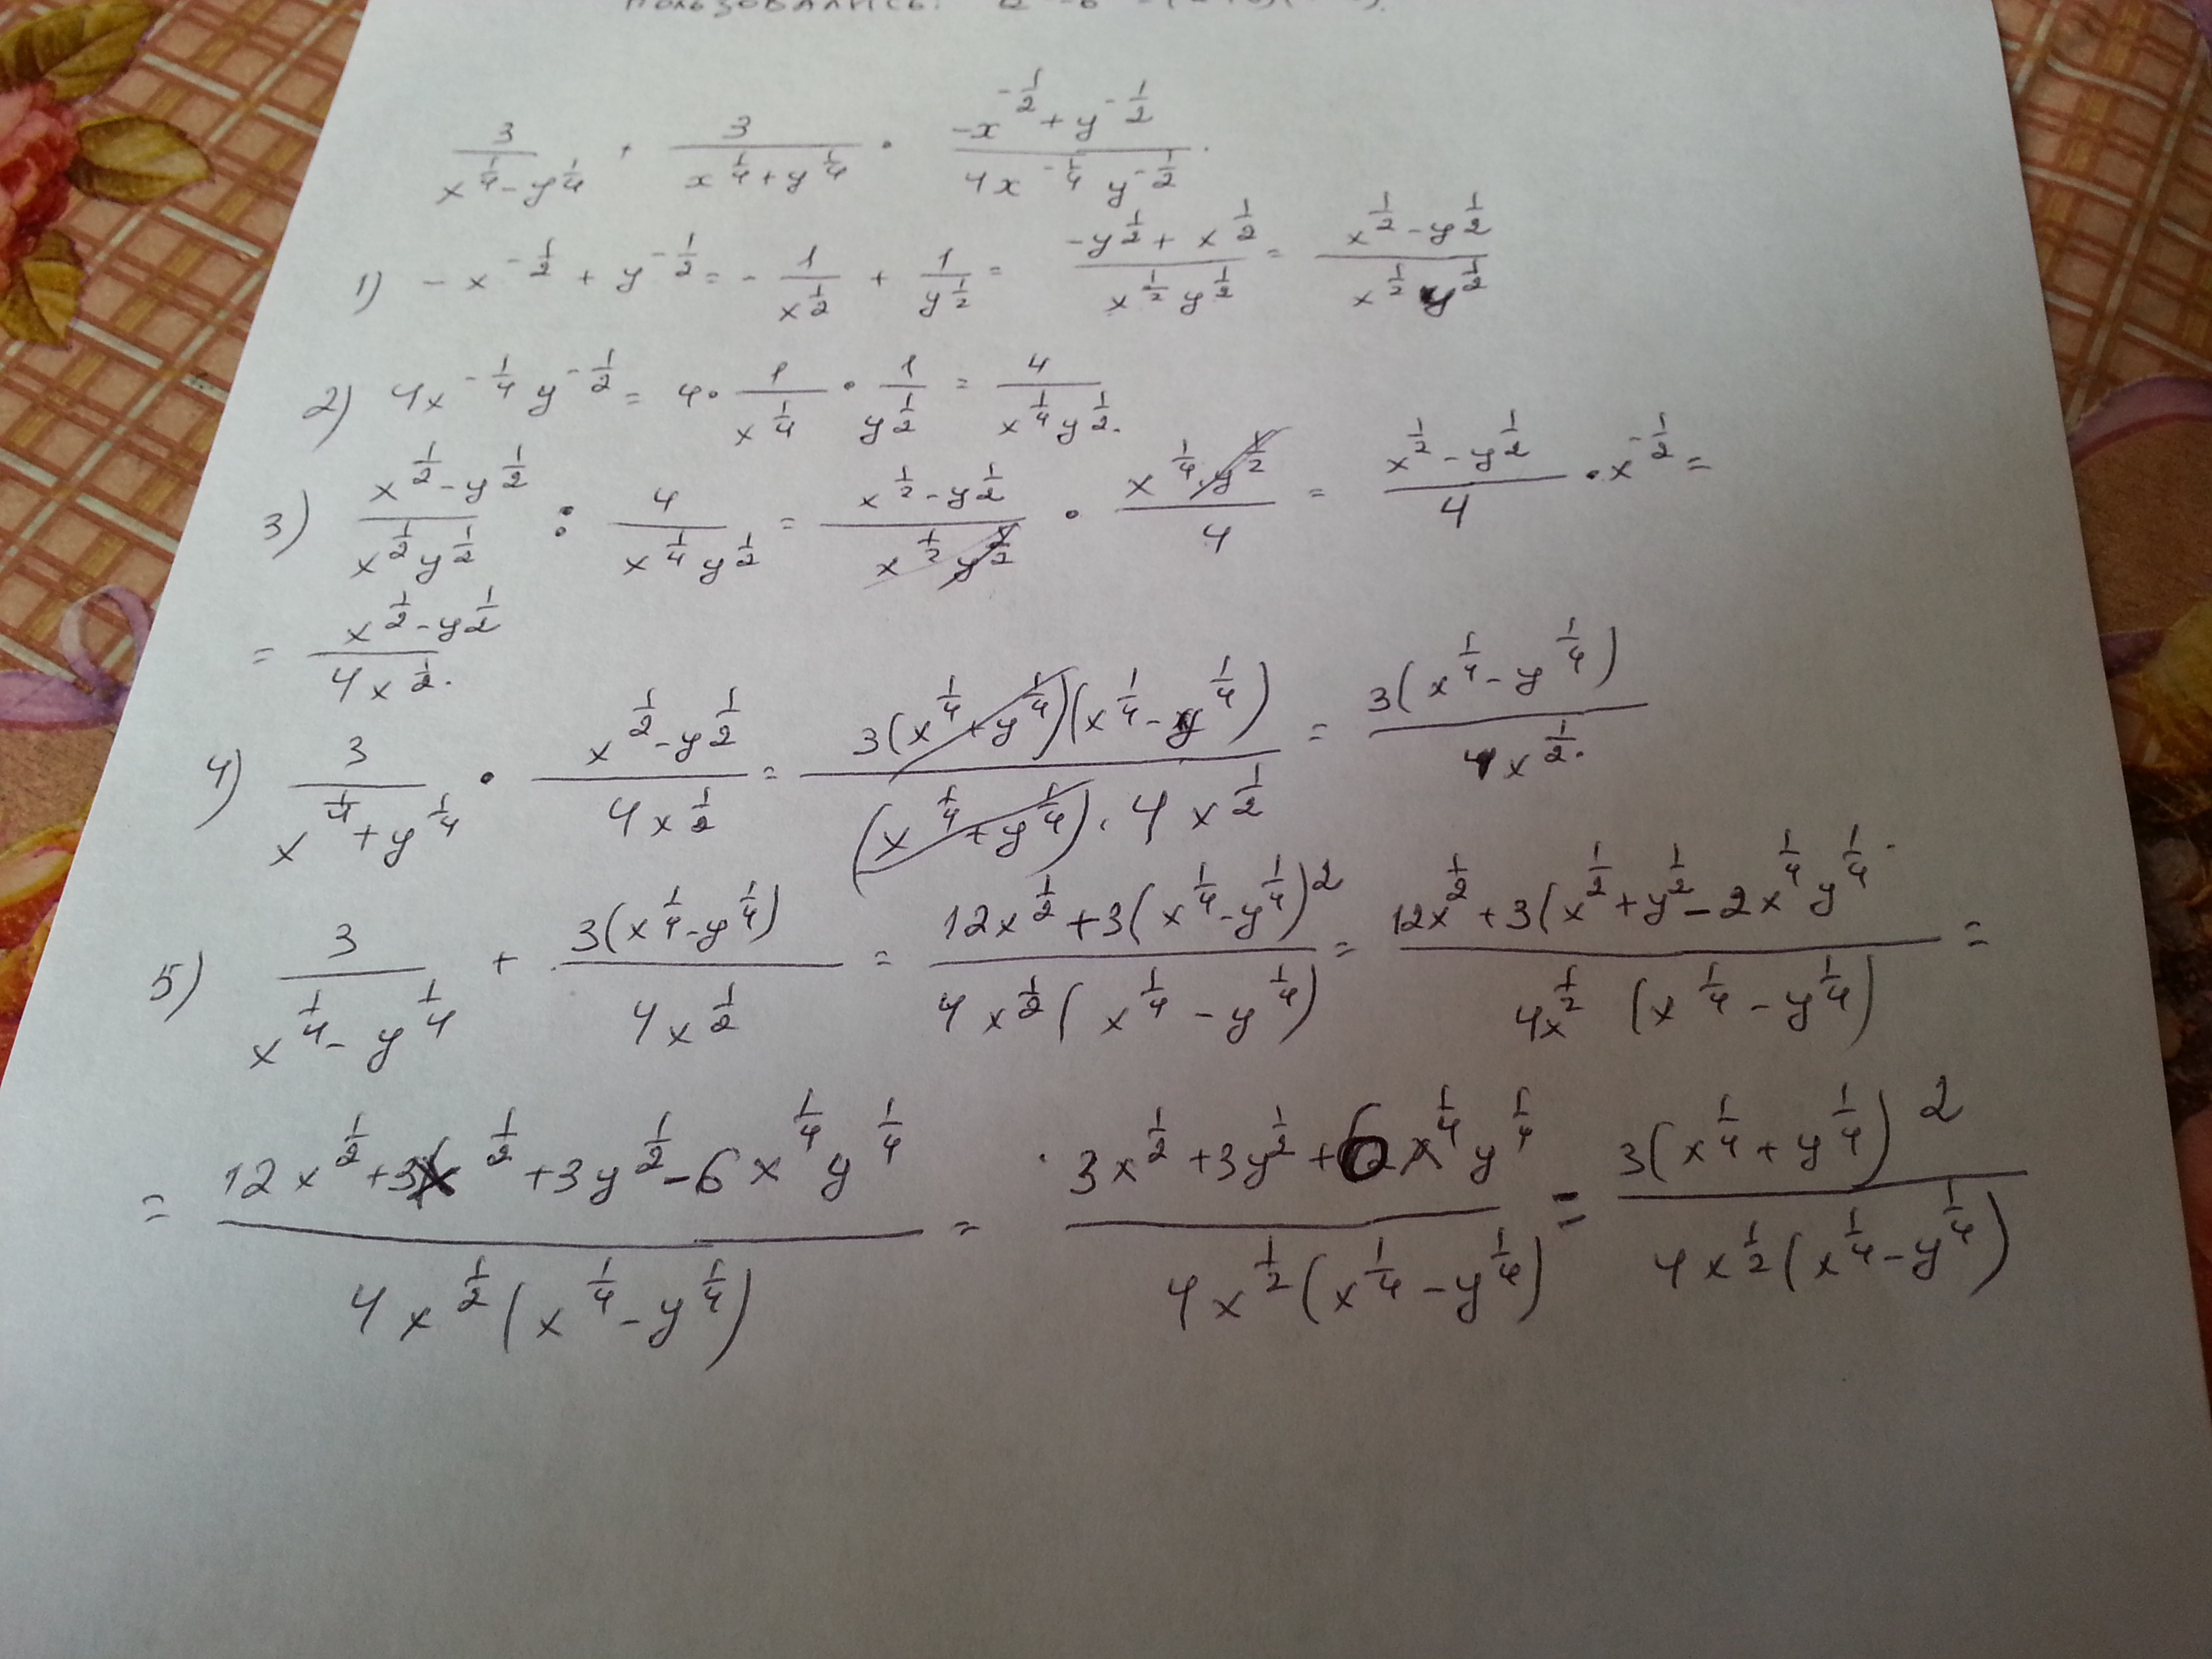 пользовались:
3/(x^(1/4) - y^(1/4)) + 3/(x^(1/4) + y^(1/4)) · (-x^(-1/2) + y^(-1/2))/(4x^(-1/4) y^(-1/2)).
1) -x^(-1/2) + y^(-1/2) = - 1/x^(1/2) + 1/y^(1/2) = (-y^(1/2) + x^(1/2))/(x^(1/2) y^(1/2)) = (x^(1/2) - y^(1/2))/(x^(1/2) y^(1/2))
2) 4x^(-1/4) y^(-1/2) = 4 · 1/x^(1/4) · 1/y^(1/2) = 4/(x^(1/4) y^(1/2)).
3) (x^(1/2) - y^(1/2))/(x^(1/2) y^(1/2)) : 4/(x^(1/4) y^(1/2)) = (x^(1/2) - y^(1/2))/(x^(1/2) y^(1/2)) · (x^(1/4) · y^(1/2))/4 = (x^(1/2) - y^(1/2))/4 · x^(-1/2) =
= (x^(1/2) - y^(1/2))/(4x^(1/2)).
4) 3/(x^(1/4) + y^(1/4)) · (x^(1/2) - y^(1/2))/(4x^(1/2)) = (3(x^(1/4) + y^(1/4))(x^(1/4) - y^(1/4)))/((x^(1/4) + y^(1/4)) · 4x^(1/2)) = (3(x^(1/4) - y^(1/4)))/(4x^(1/2)).
5) 3/(x^(1/4) - y^(1/4)) + (3(x^(1/4) - y^(1/4)))/(4x^(1/2)) = (12x^(1/2) + 3(x^(1/4) - y^(1/4))^2)/(4x^(1/2)(x^(1/4) - y^(1/4))) = (12x^(1/2) + 3(x^(1/2) + y^(1/2) - 2x^(1/4) y^(1/4))/(4x^(1/2) (x^(1/4) - y^(1/4))) =
= (12x^(1/2) + 3x^(1/2) + 3y^(1/2) - 6x^(1/4) y^(1/4))/(4x^(1/2)(x^(1/4) - y^(1/4))) = (3x^(1/2) + 3y^(1/2) + 6x^(1/4) y^(1/4))/(4x^(1/2)(x^(1/4) - y^(1/4))) = (3(x^(1/4) + y^(1/4))^2)/(4x^(1/2)(x^(1/4) - y^(1/4)))